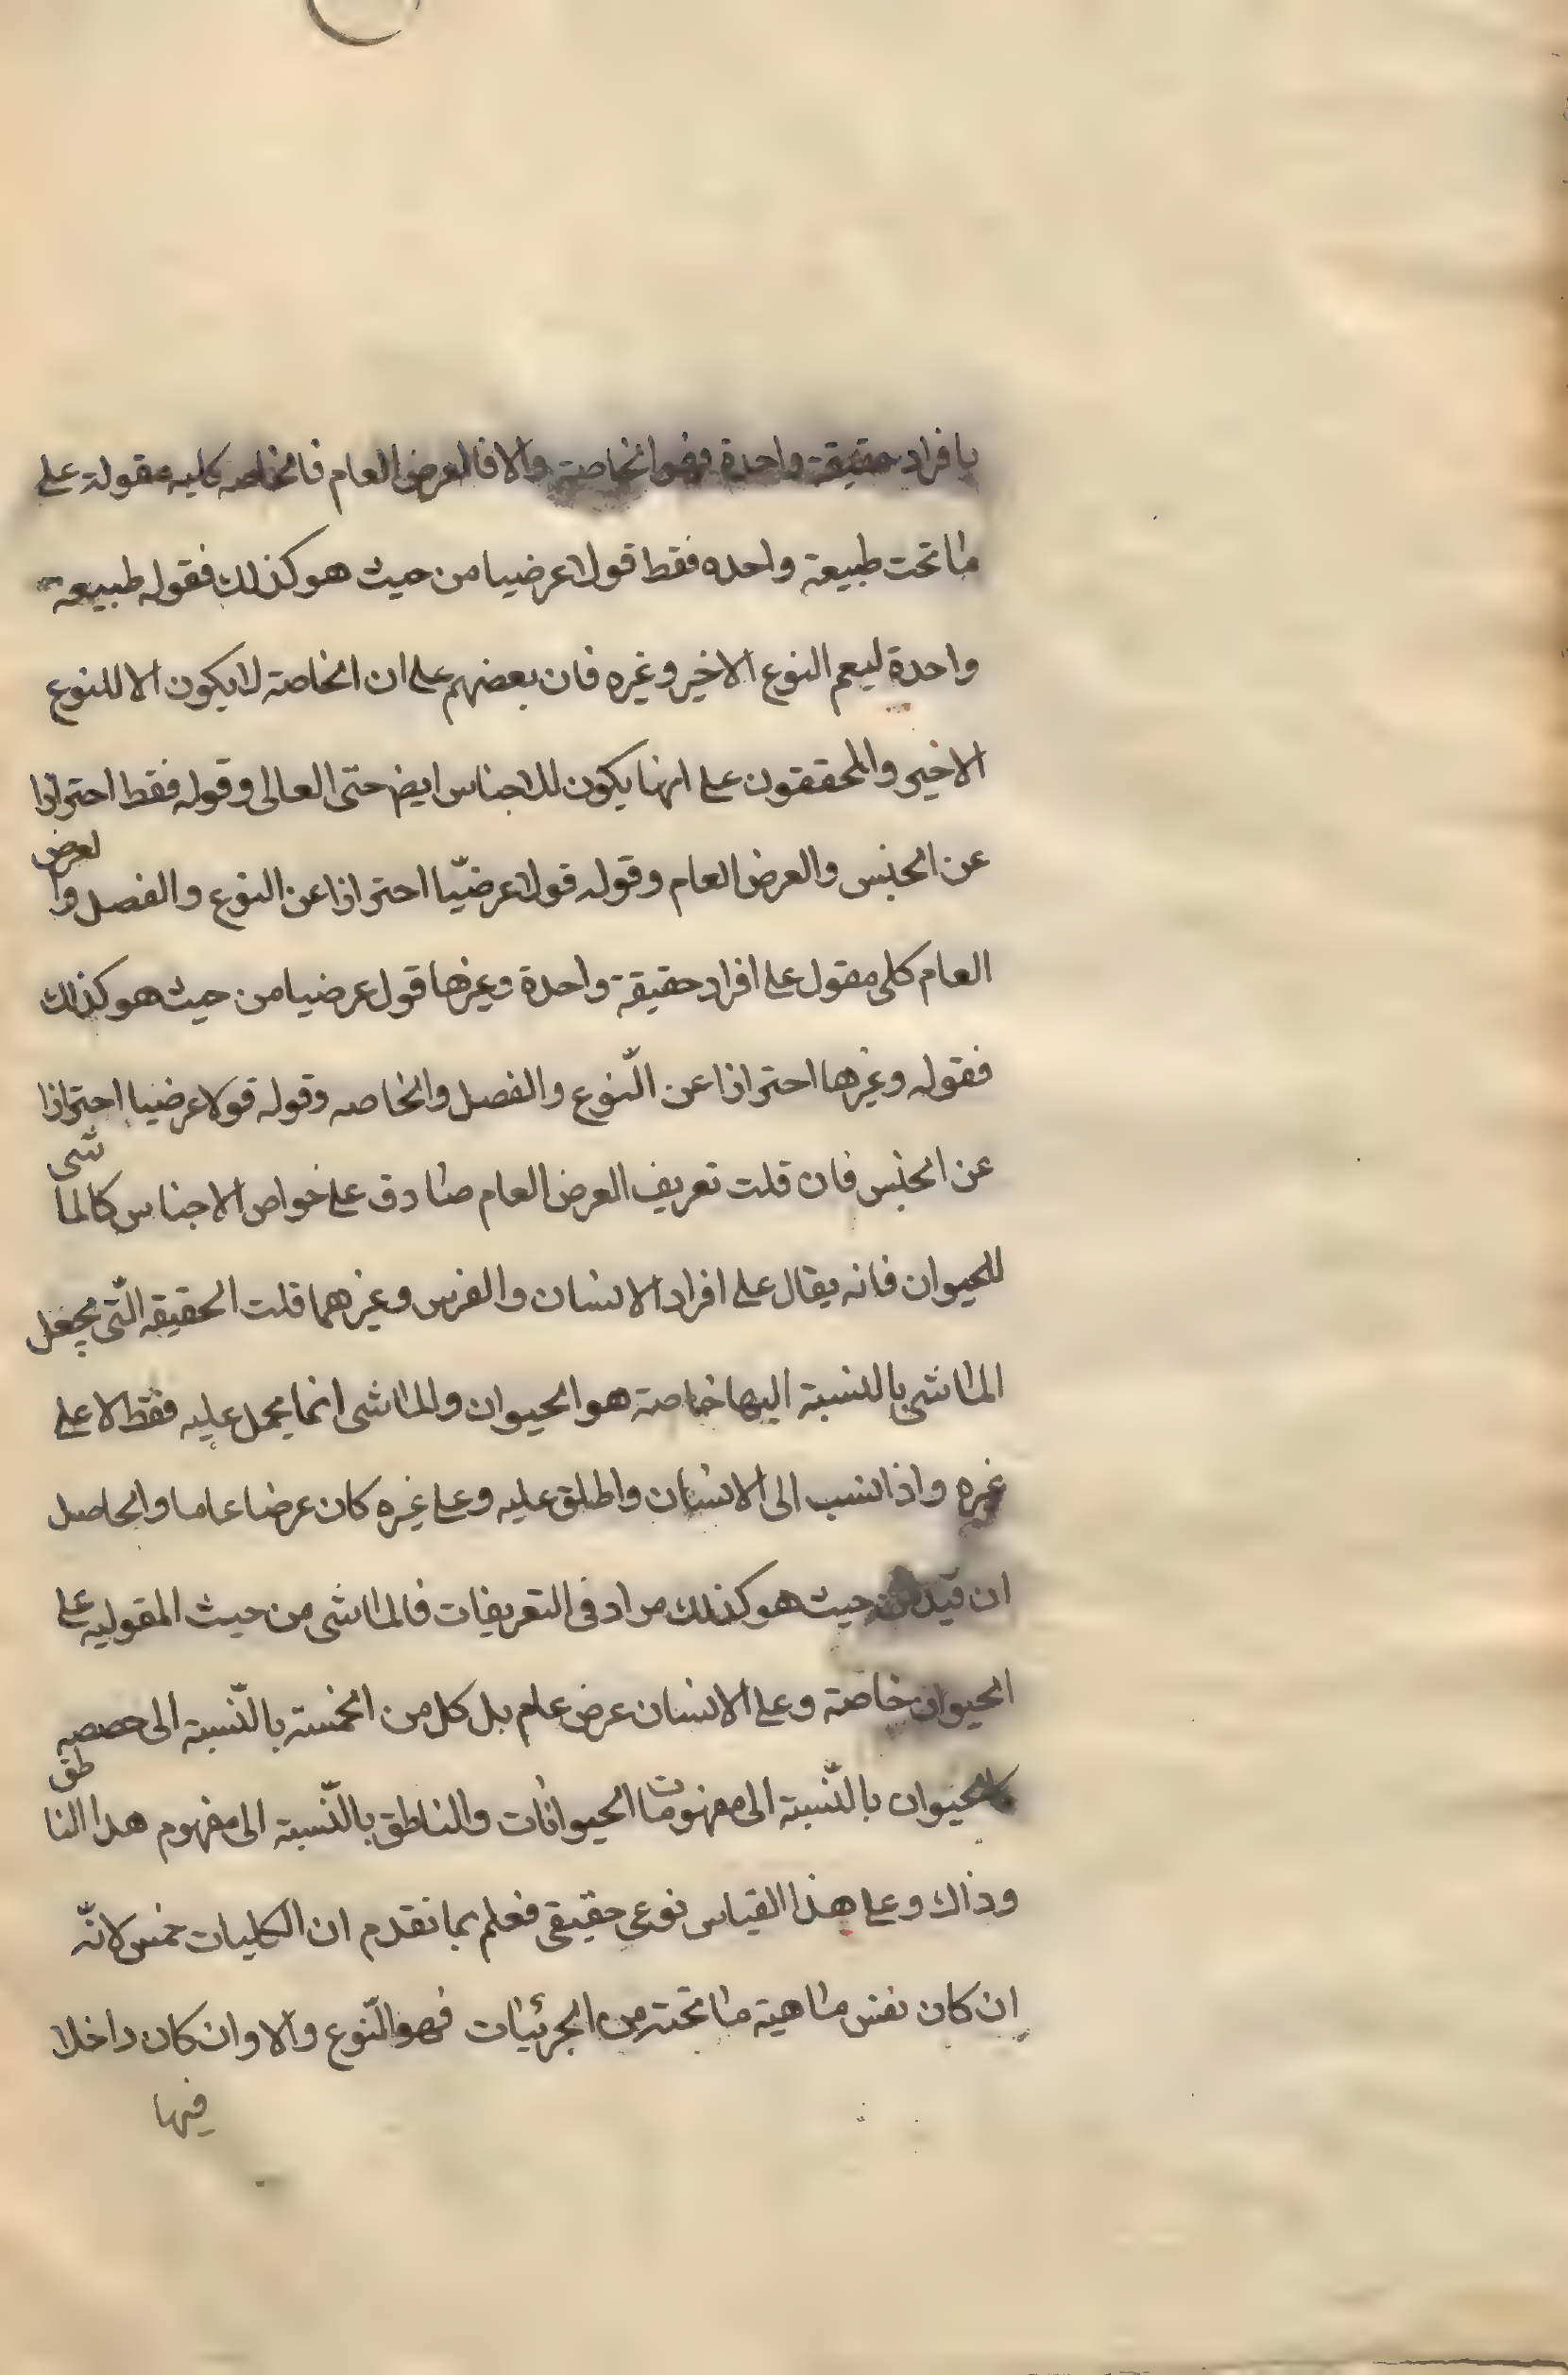 بافراد حقيقة واحدة فهو الخاصة والا فالعرض العام فالخاصه كليه مقولة على
ما تحت طبيعة واحده فقط قولا عرضيا من حيث هو كذلك فقوله طبيعة
واحدة ليعم النوع الاخير وغيره فان بعضهم على ان الخاصة لا يكون الا للنوع
الاخير والمحققون على انها يكون للاجناس ايضا حتى العالى وقوله فقط احترازا
عن الجنس والعرض العام وقوله قولا عرضيّا احترازا عن النوع والفصل والعرض
العام كلى مقول على افراد حقيقة واحدة وغيرها قول عرضيا من حيث هو كذلك
فقوله وغيرها احترازا عن النّوع والفصل والخاصه وقوله قولا عرضيا احترازا
عن الجنس فان قلت تعريف العرض العام صادق على خواص الاجناس كالماشى
للحيوان فانه يقال على افراد الانسان والفرس وغيرهما قلت الحقيقه الّتى يجعل
الماشى بالنسبة اليها خاصة هو الحيوان والماشى انما يحمل عليه فقط لا على
غيره واذا نسب الى الانسان واطلق عليه وعلى غيره كان عرضا عاما والحاصل
ان قيد من حيث هو كذلك مراد فى التعريفات فالماشى من حيث المقوليه على
الحيوان خاصّة وعلى الانسان عرض عام بل كل من الخمسة بالنّسبة الى حصصه
كالحيوان بالنّسبة الى مفهومات الحيوانات والناطق بالنّسبة الى مفهوم هذا الناطق
وذاك وعلى هذا القياس نوعى حقيقى فعلم بما تقدم ان الكليات خمس لانّه
ان كان نفس ماهية ما تحته من الجزئيات فهو النّوع والا وان كان داخلا
فيها